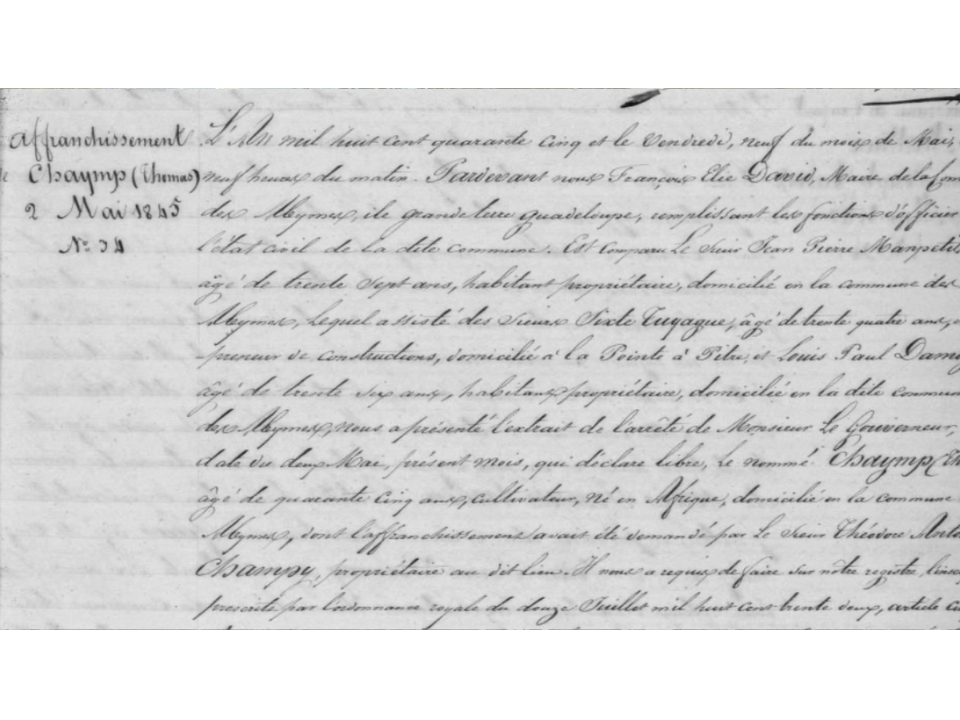 Affranchissement
Chaymp (Thomas)
2 Mai 1845
No. 34
L'An mil huit cent quarante cinq et le Vendredi, neuf du mois de Mai,
neuf heures du matin. Pardevant nous François Elie David, Maire de la Com
des Abymes, ile grande terre guadeloupe, remplissant les fonctions d'officier
l'état civil de la dite commune. Est comparu Le Sieur Jean Pierre Manpetit
âgé de trente sept ans, habitant propriétaire, domicilié en la commune des
Abymes, Lequel assisté des Sieurs Sixte Tuyague, âgé de trente quatre ans,
preneur de constructions, domicilié à la Pointe à Pitre, et Louis Paul Dam
âgé de trente six ans, habitant propriétaire, domicilié en la dite commun
des Abymes, nous a présenté l'extrait de l'arrêté de Monsieur Le Gouverneur,
date du deux Mai, présent mois, qui déclare libre, Le nommé Chaymp (Th
âgé de quarante cinq ans, cultivateur, né en Afrique, domicilié en la commune
Abymes, dont l'affranchissement avait été demandé par Le Sieur Théodore Anto
Champy, propriétaire au dit lieu. Il nous a requis de faire sur nôtre registre, l'insc
prescrite par l'ordonnance royale du douze Juillet mil huit cent trente deux, article